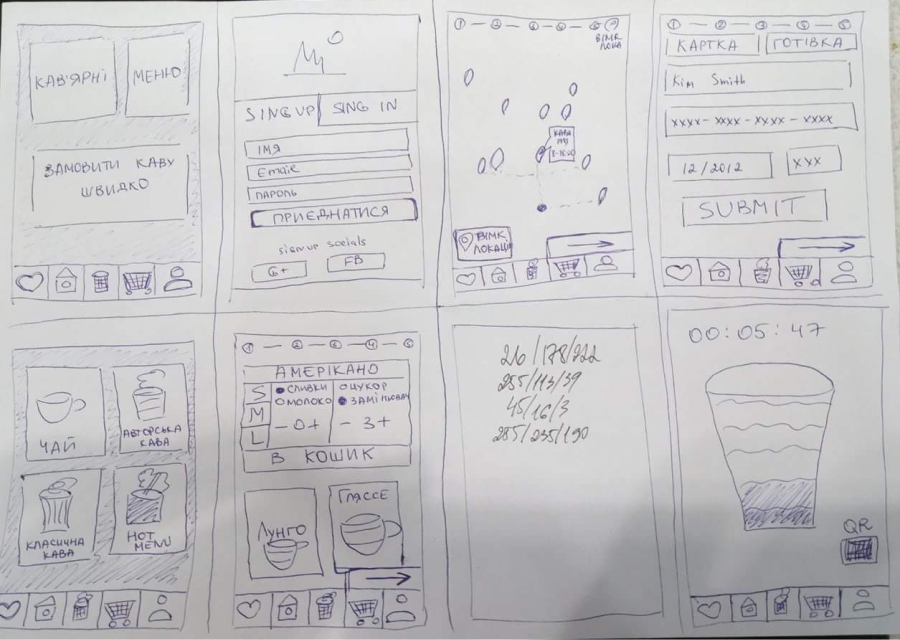 КАВ'ЯРНІ
МЕНЮ
ЗАМОВИТИ КАВУ
ШВИДКО
SING UP
SING IN
ІМЯ
Email
ПАРОЛЬ
ПРИЄДНАТИСЯ
sign up socials
G+
FB
1 2 3 4 5
ВІМК
ЛОКА
КАВА
8-18:00
ВІМК.
ЛОКАЦІ
1 2 3 4 5
КАРТКА
ГОТІВКА
Kim Smith
xxxx - xxxx - xxxx - xxxx
12/2012
xxx
SUBMIT
ЧАЙ
АВТОРСЬКА
КАВА
КЛАСИЧНА
КАВА
HOT
MENU
1 2 3 4 5
АМЕРІКАНО
S СЛИВКИ ЦУКОР
M МОЛОКО ЗАМІНЮВАЧ
L - 0 + - 3 +
В КОШИК
ЛУНГО
ГЛЯССЕ
26/178/222
255/113/39
45/16/3
285/235/190
00:05:47
QR